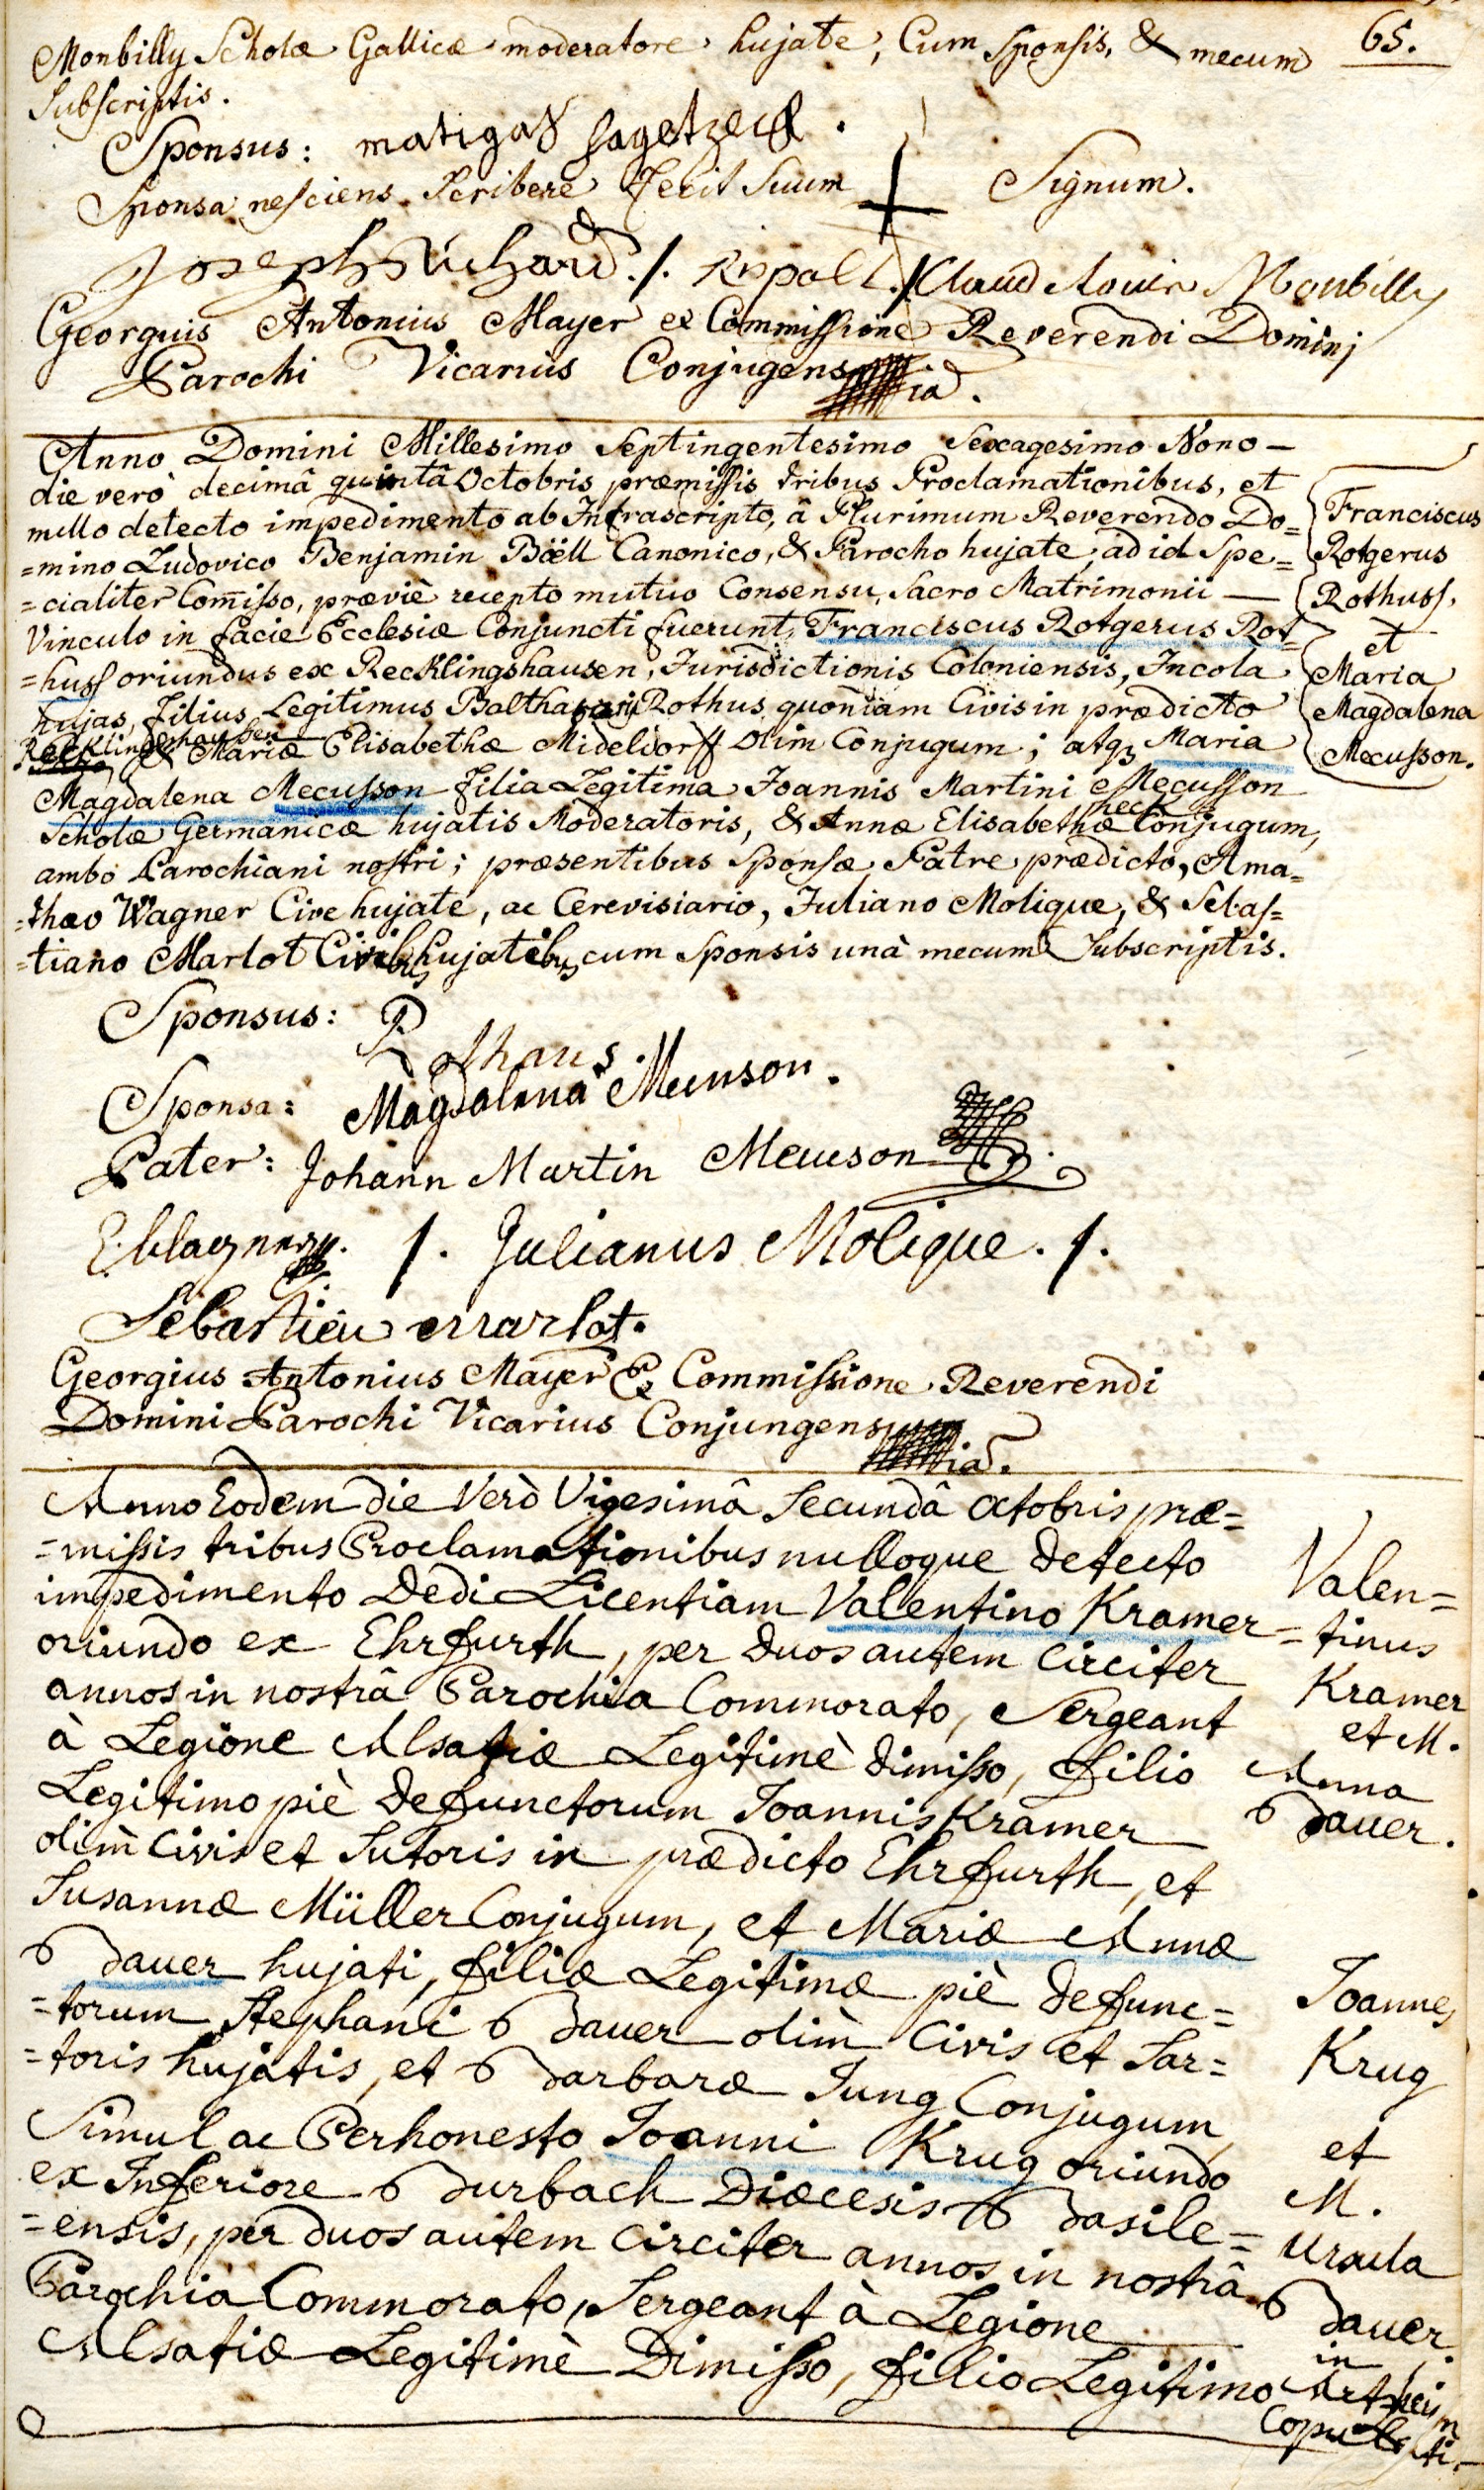 65.
Monbilly Scholæ Gallicæ moderatore hujate, Cum Sponsis, & mecum
Subscriptis.
Sponsus:
Sponsa nesciens Scribere fecit Suum + Signum.
Joseph Richard ./. Rippall ./. Claud Louis Monbilly
Georguis Antonius Mayer ex Commissione Reverendi Dominj
Parochi Vicarius Conjugens
Anno Domini Millesimo Septingentesimo Sexagesimo Nono —
die verò decimâ quintâ Octobris præmissis tribus Proclamationibus, et
nullo detecto impedimento ab Infrascripto, â Plurimum Reverendo Do=
=mino Ludovico Benjamin Böell Canonico, & Parocho hujate, ad id Spe=
=cialiter Comisso, præviè recepto mutuo Consensu, Sacro Matrimonii —
Vinculo in facie Ecclesiæ Conjuncti fuerunt, Franciscus Rotgerus Rot=
=huss oriundus ex Recklingshausen, Jurisdictionis Coloniensis, Incola
hujas, filius Legitimus Balthasari Rothus quoniam Civis in prædicto
Recklingshausen & Mariæ Elisabethæ Mideldorff olim Conjugum; atq3 Maria
Magdalena Mecusson filia Legitima Joannis Martini Mecusson
Scholæ Germanicæ hujatis Moderatoris, & Annæ Elisabethæ heck Conjugum,
ambo Parochiani nostri; præsentibus Sponsæ Patre prædicto, Ama=
=thæo Wagner Cive hujate, ac Cerevisiario, Juliano Molique, & Sebas=
=tiano Marlot Civibus hujatibus cum Sponsis unà mecum Subscriptis.
Franciscus
Rotgerus
Rothuss.
et
Maria
Magdalena
Mecusson.
Sponsus: Rothaus
Sponsa: Magdalena Meunson.
Pater: Johann Martin Meuson
./. Julianus Molique ./.
Sebastien marlot.
Georgius Antonius Mayer Ex Commissione Reverendi
Domini Parochi Vicarius Conjungens
Anno Eodem die Verò Vigesimâ Secundâ Octobris præ=
=missis tribus Proclamationibus nulloque detecto
impedimento Dedi Licentiam Valentino Kramer
oriundo ex Ehrfurth, per duos autem circiter
annos in nostrâ Parochia Commorato, Sergeant
à Legione Alsatiæ Legitimè dimisso, filio
Legitimo piè defunctorum Joannis Kramer
olim Civis et Sutoris in prædicto Ehrfurth, et
Susannæ Müller Conjugum, et Mariæ Annæ
Bauer hujati, filiæ Legitimæ piè defunc=
=torum Stephani Bauer olim Civis et Sar=
=toris hujatis, et Barbaræ Jung Conjugum
Simul ac Perhonesto Joanni Krug oriundo
ex Inferiore Burbach Diœcesis Basile=
=ensis, per duos autem circiter annos in nostrâ
Parochia Commorato, Sergeant à Legione
Alsatiæ Legitimè Dimisso, filio Legitimo
Valen=
=tinus
Kramer
et M.
Anna
Bauer.
Joannes
Krug
et
M.
Ursula
Bauer.
in
Artzheim
Copulati.